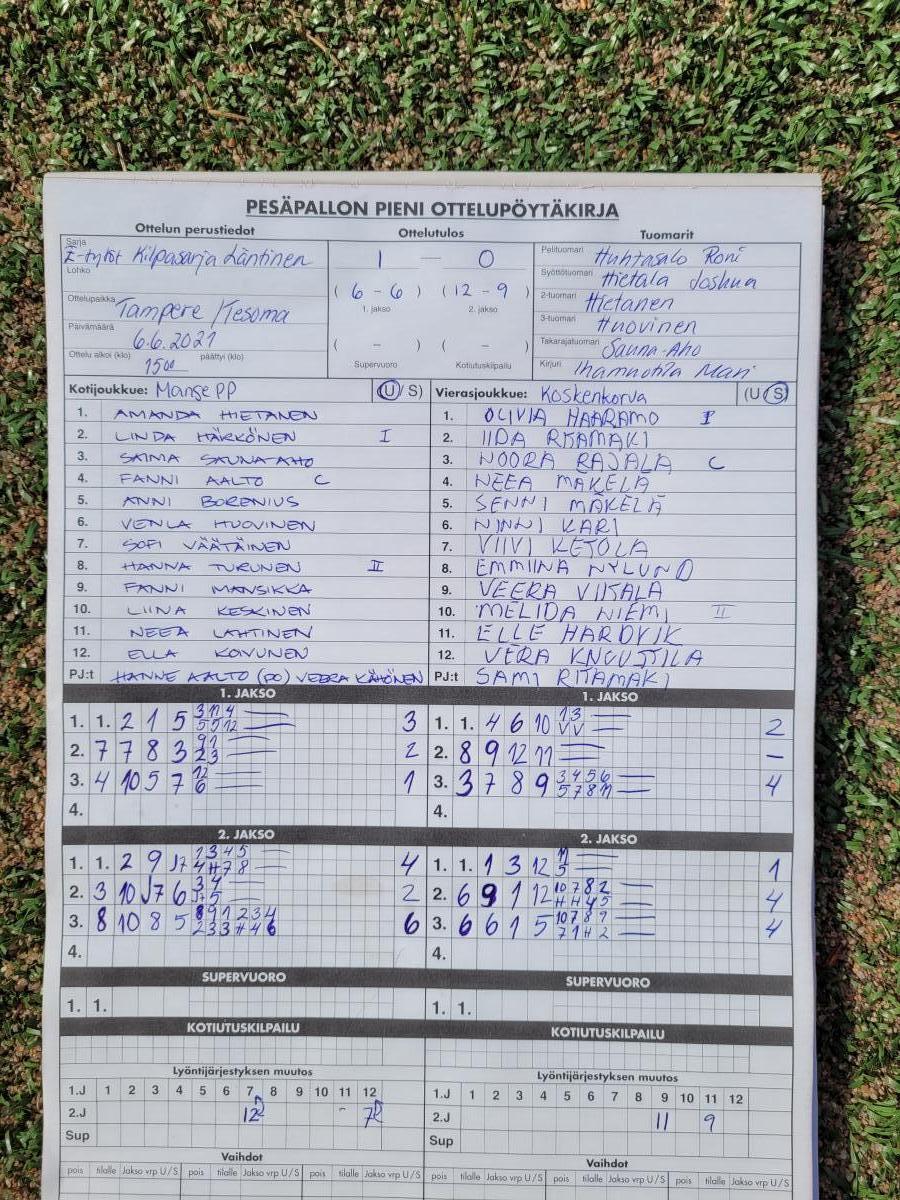 PESÄPALLON PIENI OTTELUPÖYTÄKIRJA
Ottelun perustiedot Ottelutulos Tuomarit
Sarja E-tytöt Kilpasarja Läntinen
Lohko
Ottelupaikka Tampere / Tesoma
Päivämäärä 6.6.2021
Ottelu alkoi (klo) 15 00 päättyi (klo)
1 — 0
( 6 - 6 ) ( 12 - 9 )
1. jakso 2. jakso
( - ) ( - )
Supervuoro Kotiutuskilpailu
Pelituomari Huhtasalo Roni
Syöttötuomari Hietala Joshua
2-tuomari Hietanen
3-tuomari Huovinen
Takarajatuomari Sauna-Aho
Kirjuri Ihamuotila Mari
Kotijoukkue: Manse PP (U/S)
1. AMANDA HIETANEN
2. LINDA HÄRKÖNEN I
3. SAIMA SAUNA-AHO
4. FANNI AALTO C
5. ANNI BORENIUS
6. VENLA HUOVINEN
7. SOFI VÄÄTÄINEN
8. HANNA TURUNEN II
9. FANNI MANSIKKA
10. LIINA KESKINEN
11. NEEA LAHTINEN
12. ELLA KOIVUNEN
PJ:t HANNE AALTO (PO) VEERA KÄHÖNEN
Vierasjoukkue: Koskenkorva (U/S)
1. OLIVIA HAARAMO I
2. IIDA RITAMÄKI
3. NOORA RAJALA C
4. NEEA MÄKELÄ
5. SENNI MÄKELÄ
6. NINNI KARI
7. VIIVI KETOLA
8. EMMIINA NYLUND
9. VEERA VIITALA
10. MELIDA NIEMI II
11. ELLE HARDVIK
12. VERA KNUUTTILA
PJ:t SAMI RITAMÄKI
1. JAKSO 1. JAKSO
1. 1. 2 1 5 3 11 4 3
5 5 12
2. 7 7 8 3 9 1 2
2 3
3. 4 10 5 7 12 1
6
4.
1. 1. 4 6 10 1 3 2
V V
2. 8 9 12 11 –
3. 3 7 8 9 3 4 5 6 4
5 7 8 11
4.
2. JAKSO 2. JAKSO
1. 1. 2 9 J7 1 3 4 5 4
4 H 7 8
2. 3 10 J7 6 3 4 2
J+ 5
3. 8 10 8 5 8 9 1 2 3 4 6
2 3 3 H 4 6
4.
1. 1. 1 3 12 11 1
5
2. 6 9 1 12 10 7 8 2 4
H H 4 5
3. 6 6 1 5 10 7 8 9 4
7 1 H 2
4.
SUPERVUORO SUPERVUORO
1. 1. 1. 1.
KOTIUTUSKILPAILU KOTIUTUSKILPAILU
Lyöntijärjestyksen muutos Lyöntijärjestyksen muutos
1.J 1 2 3 4 5 6 7 8 9 10 11 12 1.J 1 2 3 4 5 6 7 8 9 10 11 12
2.J 12 7 2.J 11 9
Sup Sup
Vaihdot Vaihdot
pois tilalle Jakso vrp U/S pois tilalle Jakso vrp U/S pois tilalle Jakso vrp U/S pois tilalle Jakso vrp U/S pois tilalle Jakso vrp U/S pois tilalle Jakso vrp U/S